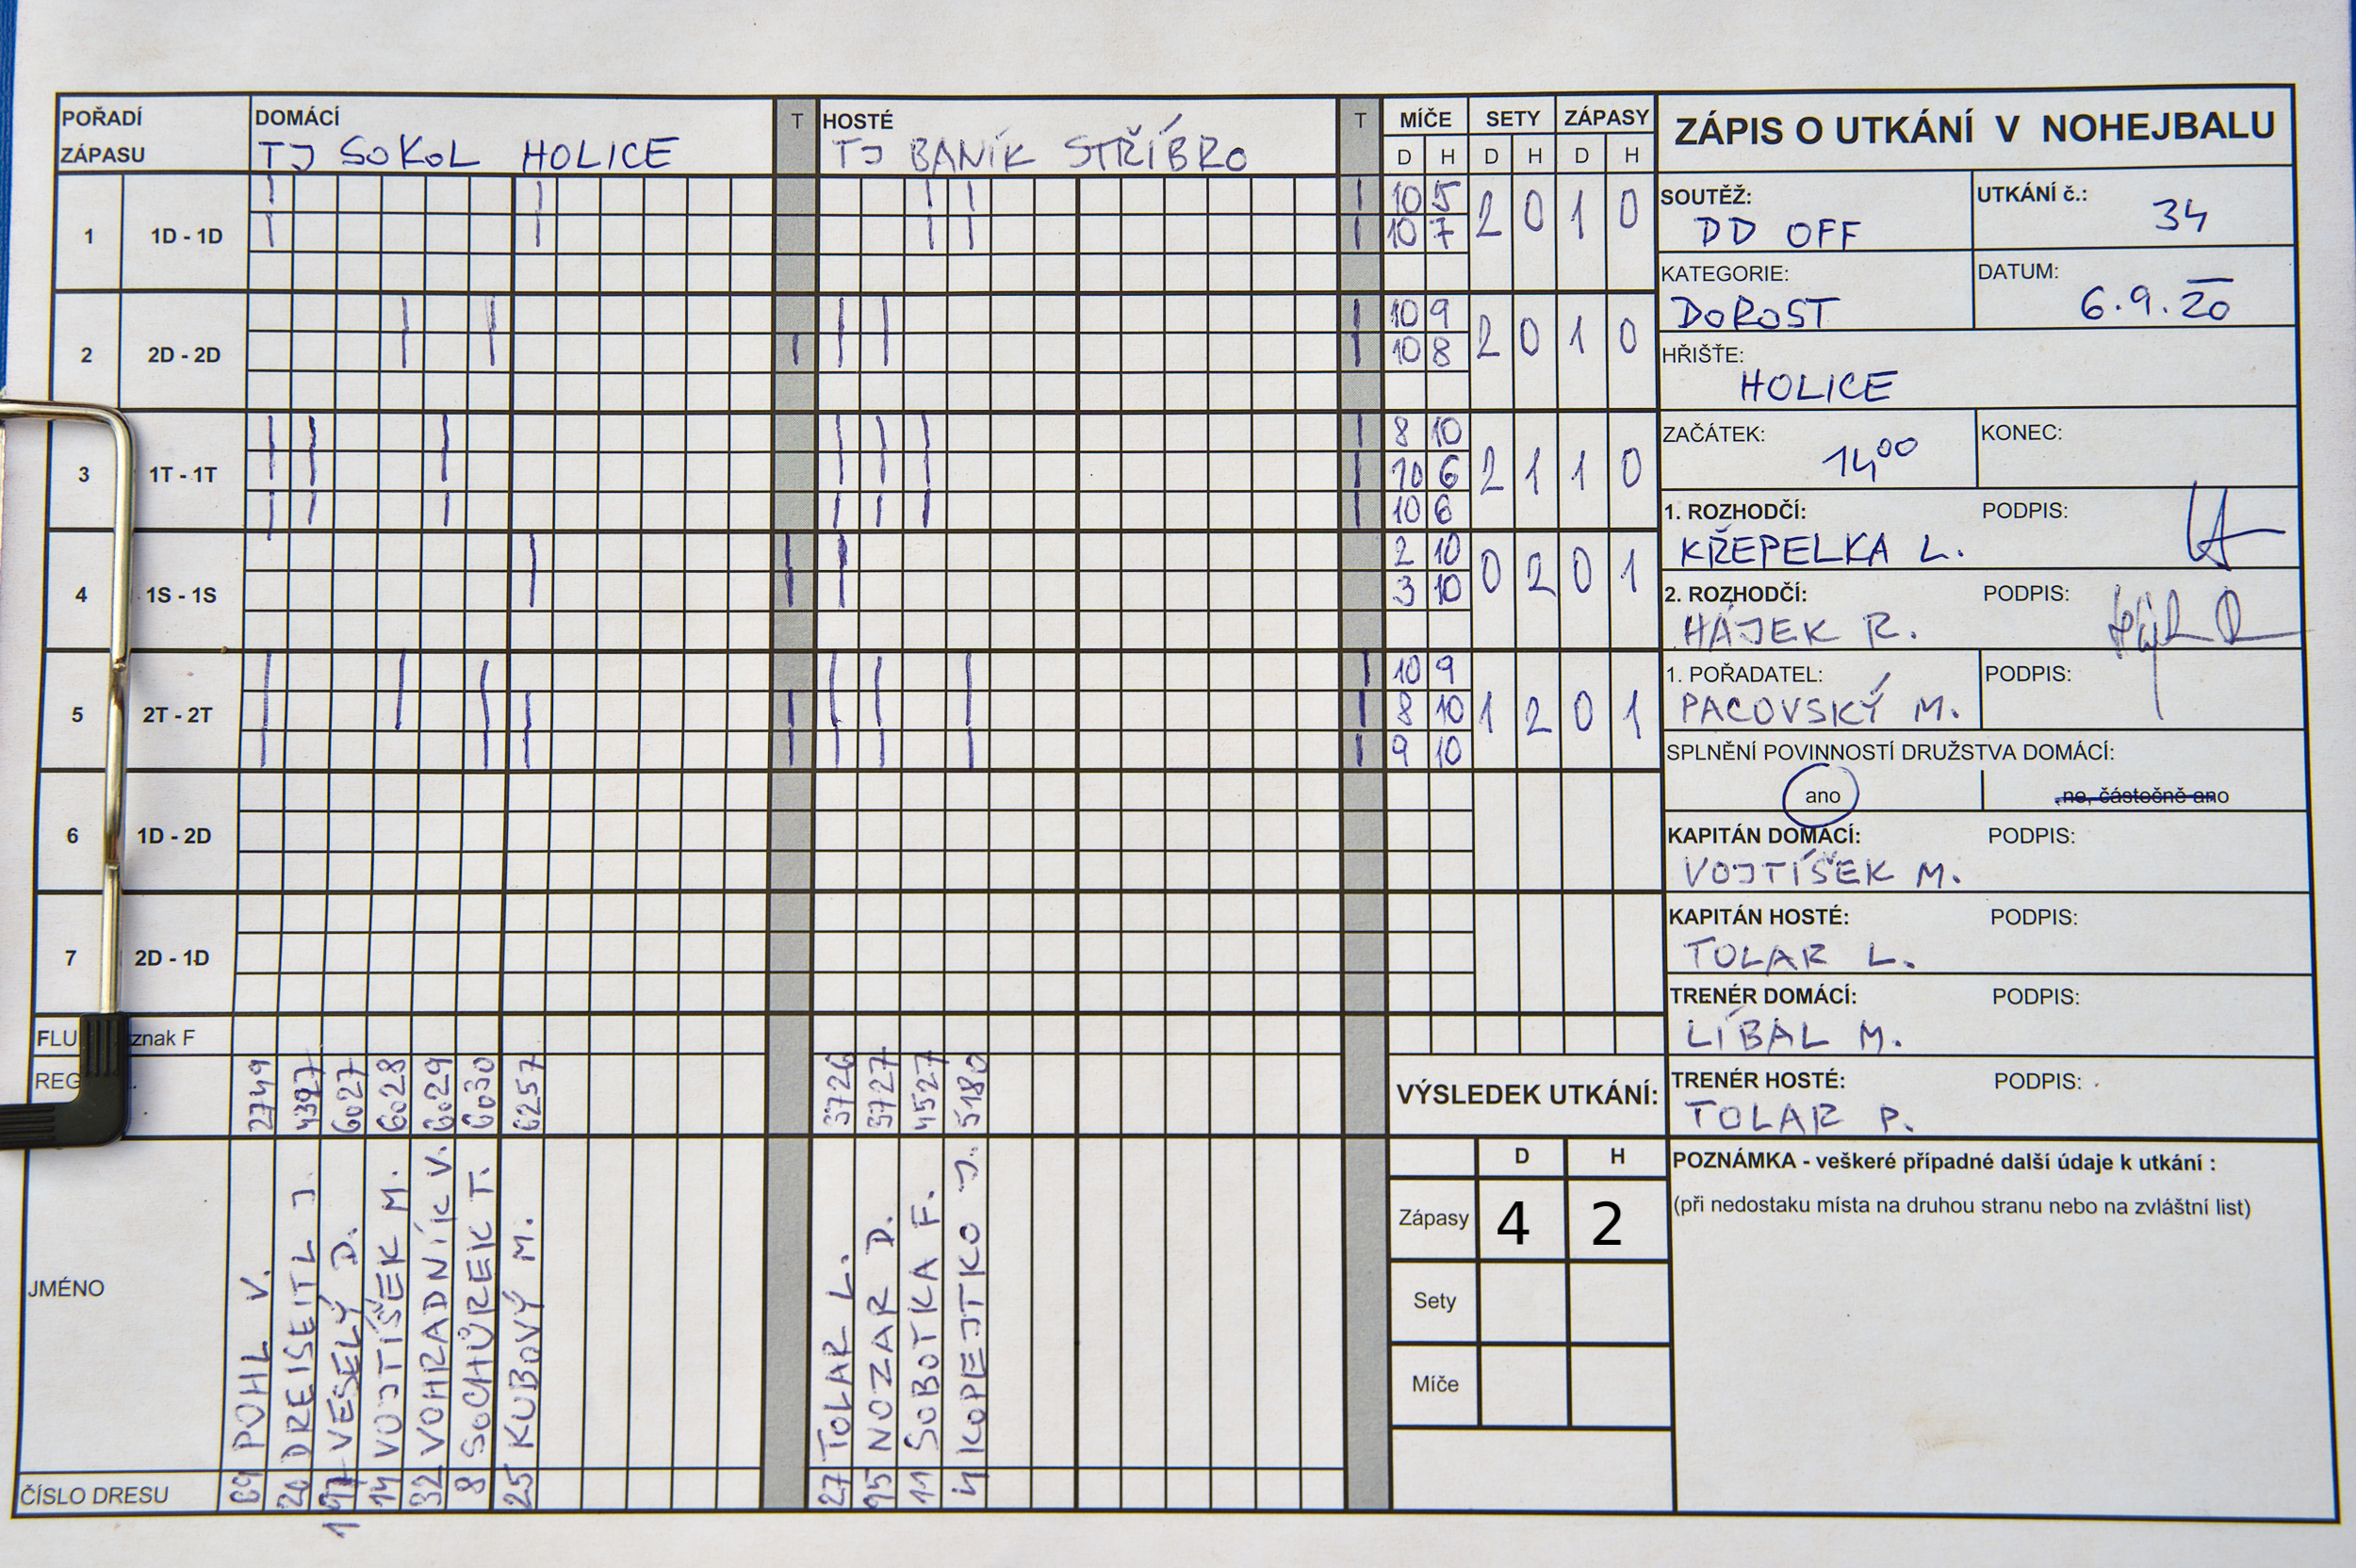 POŘADÍ ZÁPASU DOMÁCÍ T HOSTÉ T MÍČE SETY ZÁPASY
TJ SOKOL HOLICE TJ BANÍK STŘÍBRO D H D H D H
1 1D - 1D 10 5 2 0 1 0
10 7
2 2D - 2D 10 9 2 0 1 0
10 8
3 1T - 1T 8 10 2 1 1 0
10 6
10 6
4 1S - 1S 2 10 0 2 0 1
3 10
5 2T - 2T 10 9 1 2 0 1
8 10
9 10
6 1D - 2D
7 2D - 1D
znak F
2749 4397 6027 6028 6029 6030 6257 3726 3727 4527 5180
JMÉNO
POHL V.
DREISEITL J.
VESELÝ D.
VOJTÍŠEK M.
VOHRADNÍK V.
SOCHŮREK T.
KUBOVÝ M.
TOLAR L.
NOZAR D.
SOBOTKA F.
KOPEJTKO J.
ČÍSLO DRESU 69 20 14 32 8 25 27 95 11 4
VÝSLEDEK UTKÁNÍ:
D H
Zápasy 4 2
Sety
Míče
ZÁPIS O UTKÁNÍ V NOHEJBALU
SOUTĚŽ: UTKÁNÍ č.:
DD OFF 34
KATEGORIE: DATUM:
DOROST 6.9.20
HŘIŠTĚ:
HOLICE
ZAČÁTEK: KONEC:
14⁰⁰
1. ROZHODČÍ: PODPIS:
KŘEPELKA L.
2. ROZHODČÍ: PODPIS:
HÁJEK R.
1. POŘADATEL: PODPIS:
PACOVSKÝ M.
SPLNĚNÍ POVINNOSTÍ DRUŽSTVA DOMÁCÍ:
ano ne, částečně ano
KAPITÁN DOMÁCÍ: PODPIS:
VOJTÍŠEK M.
KAPITÁN HOSTÉ: PODPIS:
TOLAR L.
TRENÉR DOMÁCÍ: PODPIS:
LÍBAL M.
TRENÉR HOSTÉ: PODPIS:
TOLAR P.
POZNÁMKA - veškeré případné další údaje k utkání :
(při nedostaku místa na druhou stranu nebo na zvláštní list)